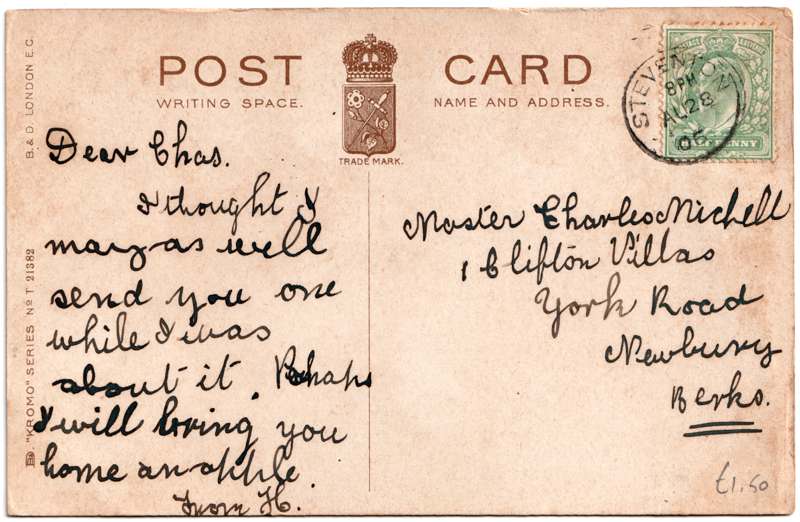 POST CARD
WRITING SPACE.
NAME AND ADDRESS.
TRADE MARK.
B. & D. LONDON E.C.
"KROMO" SERIES No T 21382
STEVENTON
8 PM
AU 28
05
HALF PENNY
Dear Chas.
I thought I
may as well
send you one
while I was
about it. Perhaps
I will bring you
home an apple.
From H.
Master Charles Michell
1 Clifton Villas
York Road
Newbury
Berks.
£1.50